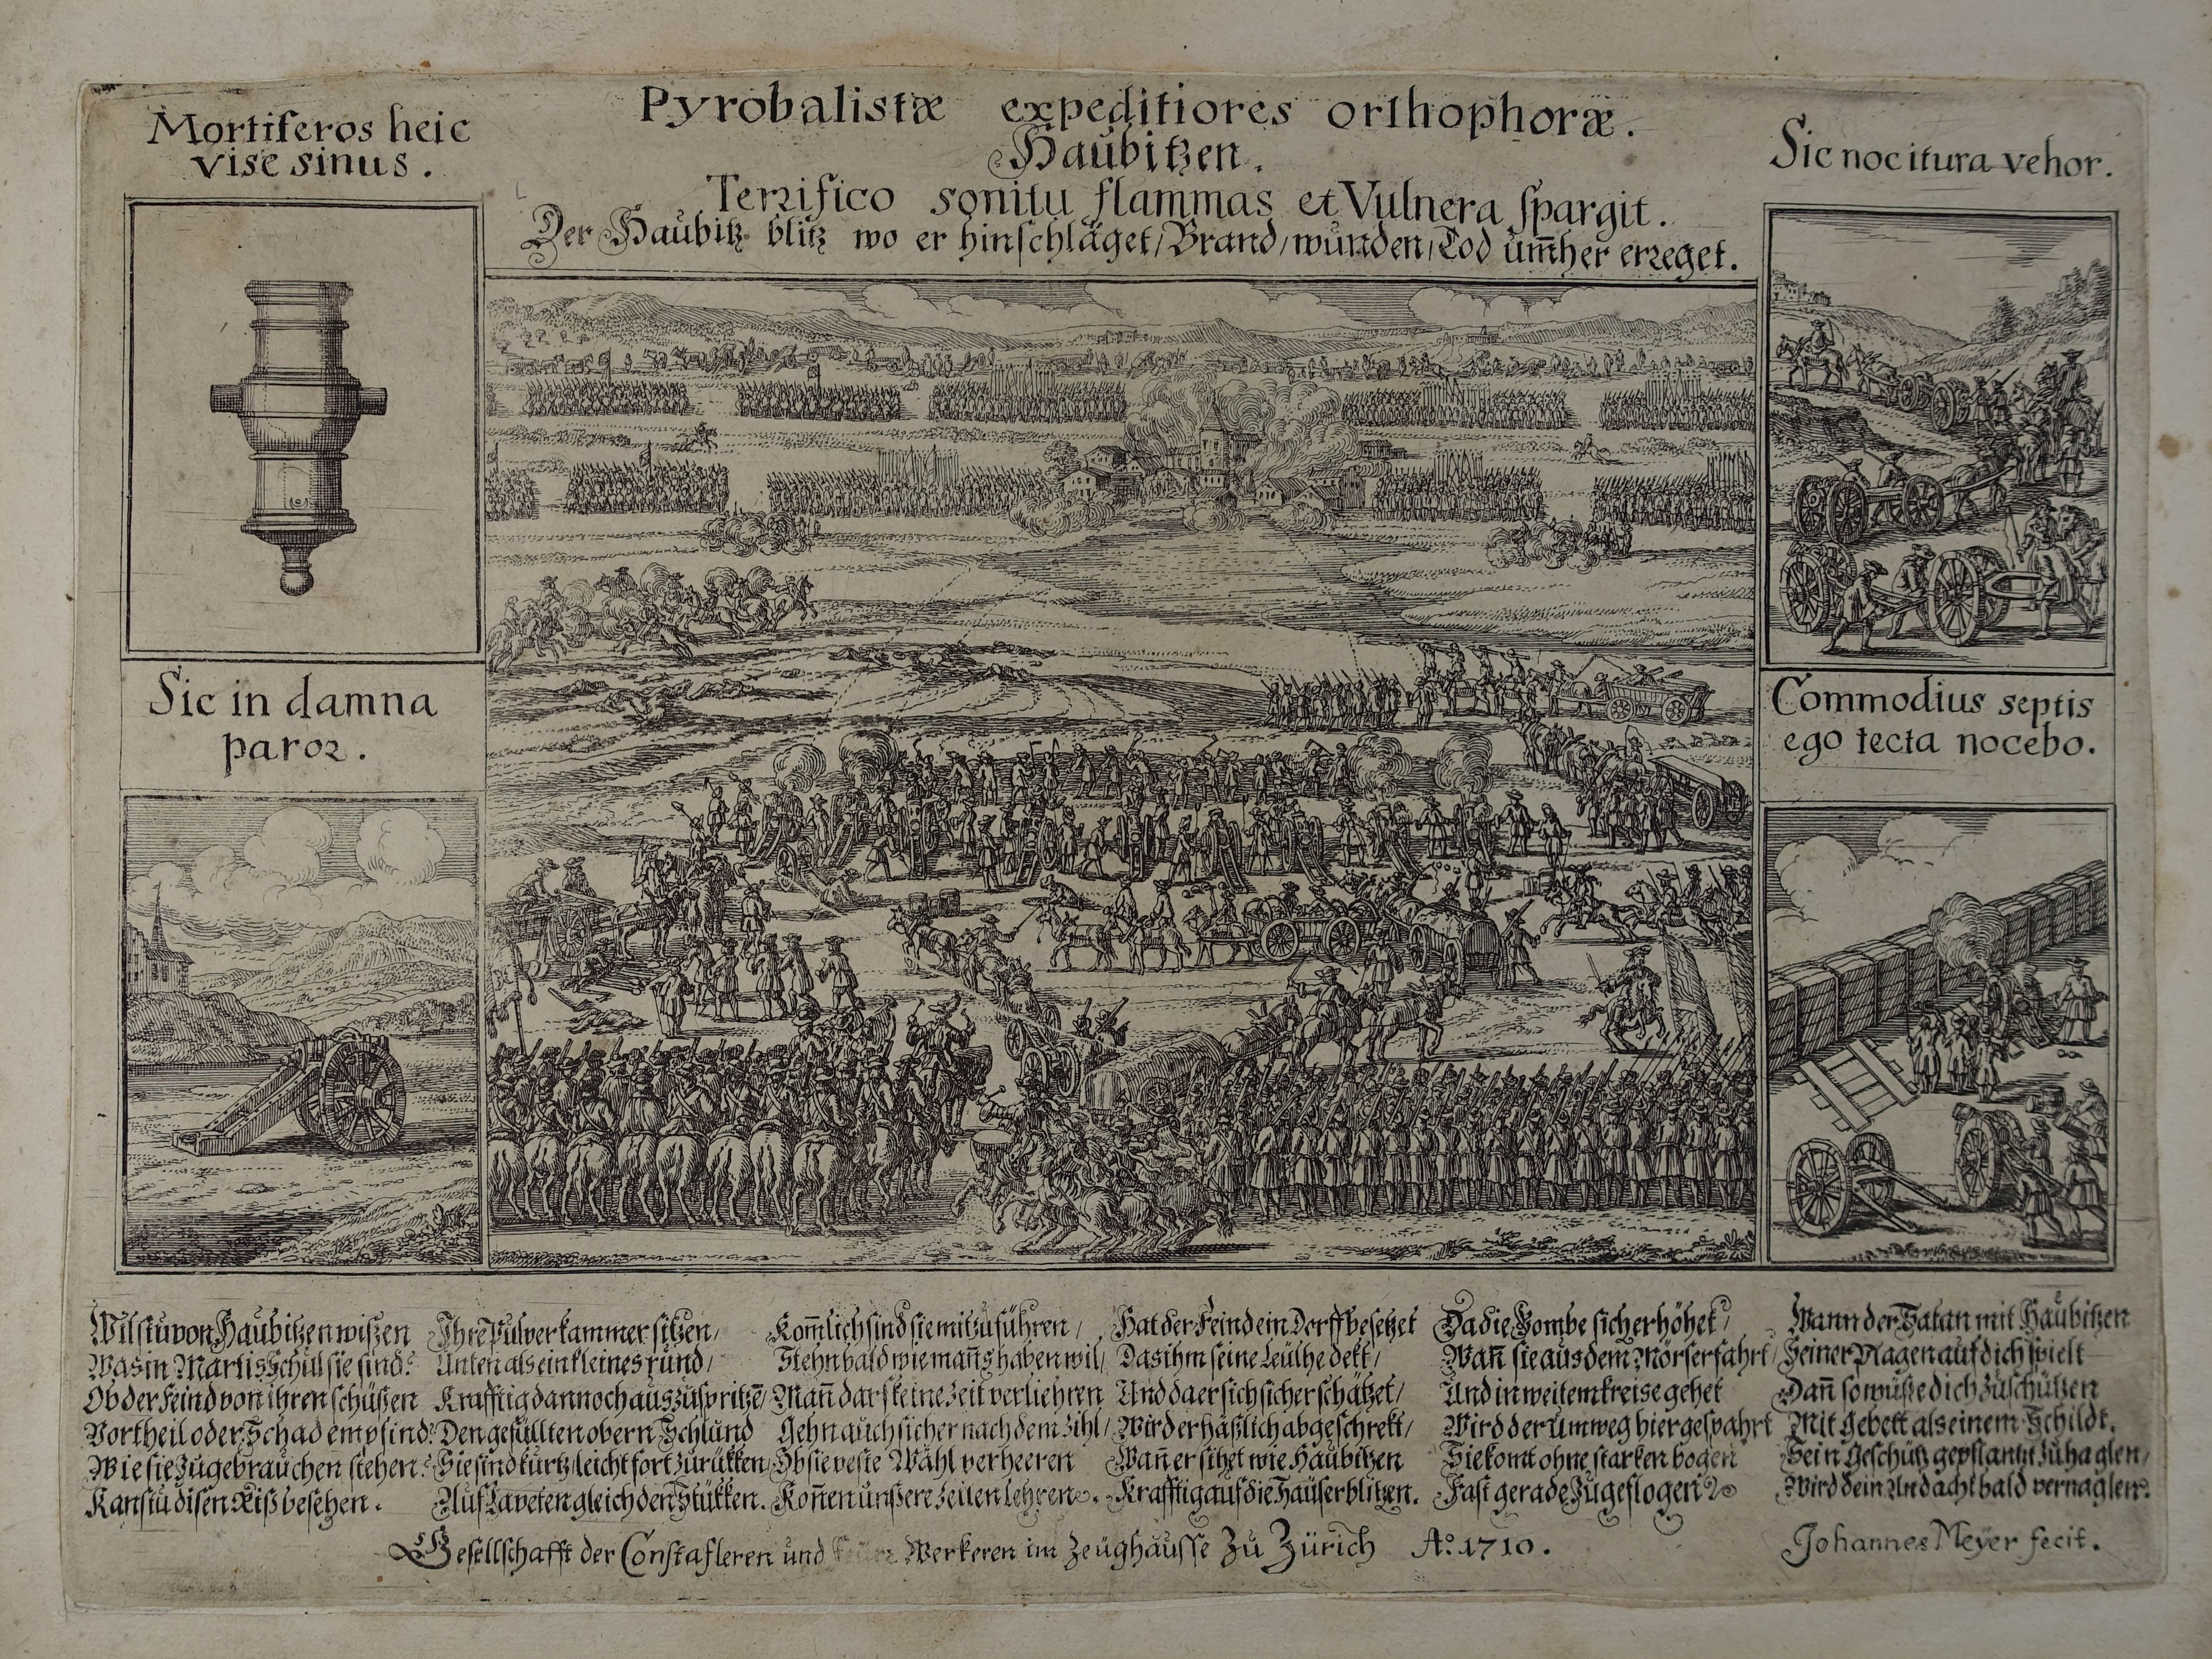 Mortiferos heic
vise sinus.
Pyrobalistæ expeditiores orthophoræ.
Haubitzen.
Terrifico sonitu flammas et Vulnera spargit.
Der Haubitz blitz wo er hinschläget/Brand/wunden/Tod um̄her erreget.
Sic nocitura vehor.
Sic in damna
paror.
Commodius septis
ego tecta nocebo.
Wilstu von Haubitzen wißen
Was in Martis Schul sie sind?
Ob der Feind von ihren schüßen
Vortheil oder Schad empfind?
Wie sie zugebrauchen stehen?
Kanstu disen Riß besehen.
Ihre Pulverkammer sitzen/
Unten als ein kleines rund/
Krafftig dannoch auszuspritzē/
Den gefüllten obern Schlund
Sie sind kurtz/leicht fort zurükken/
Auf Laveten gleich den Stükken.
Kom̄lich sind sie mit zuführen/
Stehn bald wie man̄s haben wil/
Man̄ darf keine Zeit verliehren
Gehn auch sicher nach dem Zihl/
Ob sie veste Wähl verheeren
Kön̄en unsere Zeilen lehren.
Hat der Feind ein Dorff besetzet
Das ihm seine Leüthe dekt/
Und da er sich sicher schätzet/
Wird er häßlich abgeschrekt/
Wan̄ er sihet wie Haubitzen
Krafftig auf die Häuser blitzen.
Da die Bombe sich erhöhet/
Wan̄ sie aus dem Mörser fährt/
Und in weitem kreise gehet
Wird der umweg hier gespahrt
Sie komt ohne starken bogen
Fast gerade zugeflogen
Wann der Satan mit Haubitzen
Seiner Plagen auf dich spielt
Dan̄ so wüße dich zuschützen
Mit Gebett als einem Schildt.
Sein Geschütz gepflantzt zu haglen/
Wird dein Andacht bald vernaglen.
Gesellschafft der Constafleren und Feürwerkeren im Zeüghausse Zu Zürich Aº. 1710.
Johannes Meÿer fecit.